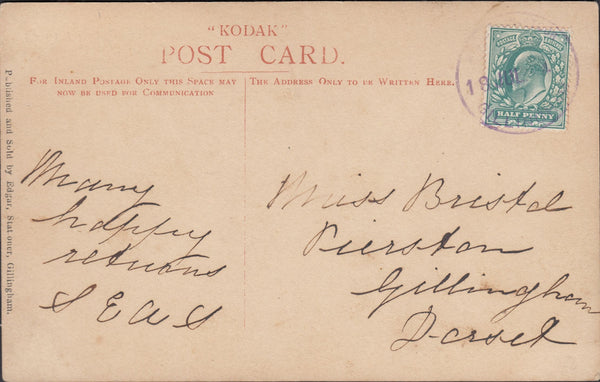 "KODAK"
POST CARD.
FOR INLAND POSTAGE ONLY THIS SPACE MAY
NOW BE USED FOR COMMUNICATION
THE ADDRESS ONLY TO BE WRITTEN HERE.
HALF PENNY
18
Published and Sold by Edgar, Stationer, Gillingham.
Many
happy
returns
S E A S
Miss Bristol
Pierston
Gillingham
Dorset